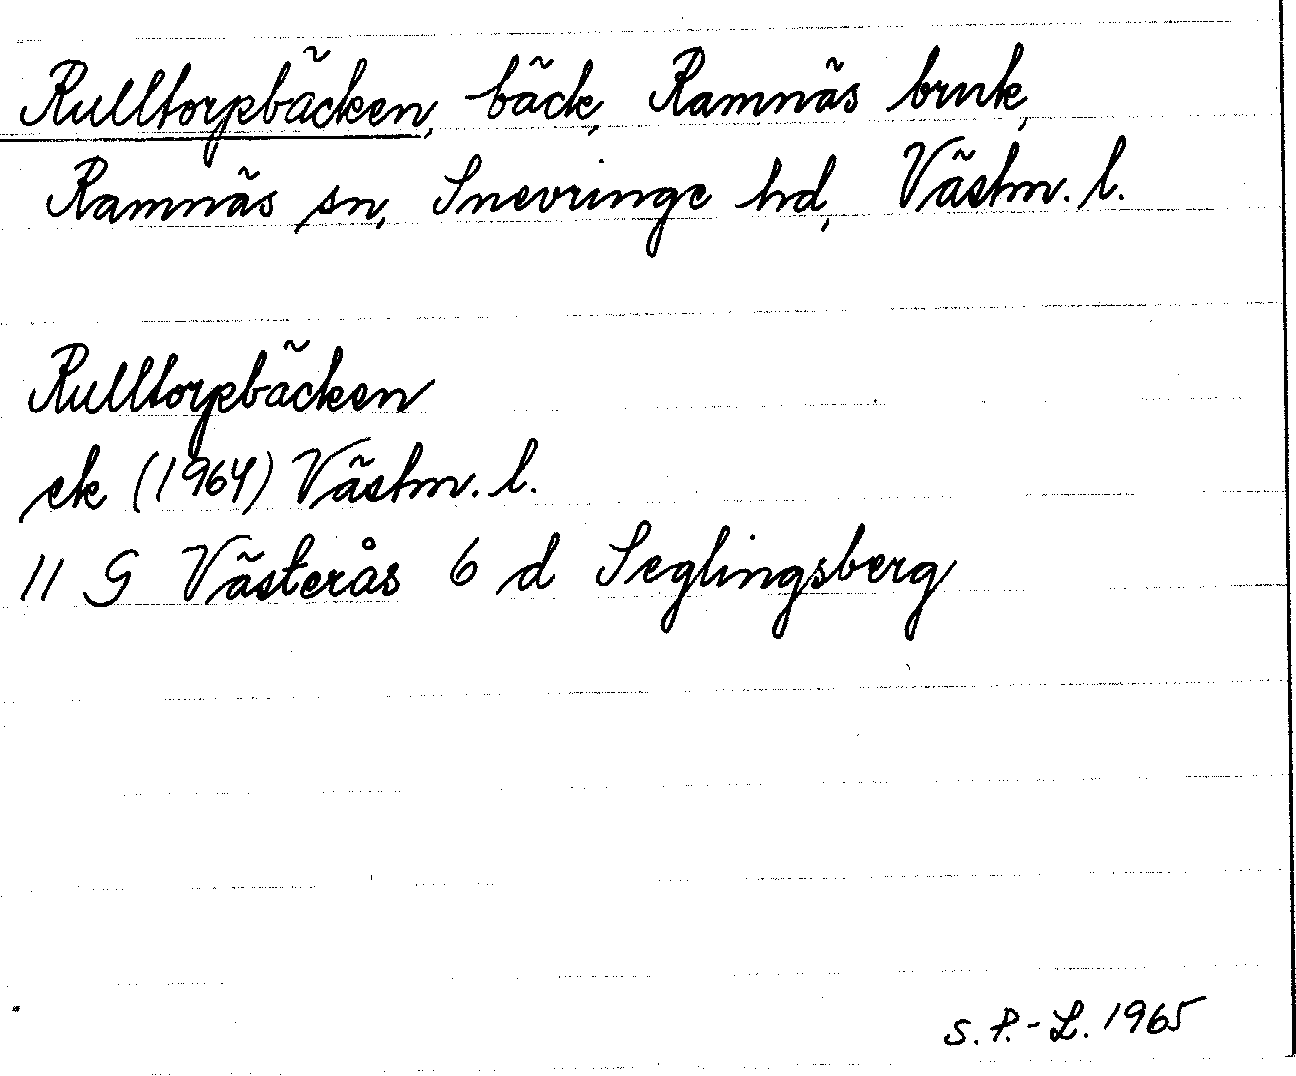 Rulltorpbäcken, bäck, Ramnäs bruk,
Ramnäs sn, Snevringe hd, Västm. l.
Rulltorpbäcken
ek (1964) Västm. l.
11 G Västerås 6 d Seglingsberg
S. P.-L. 1965